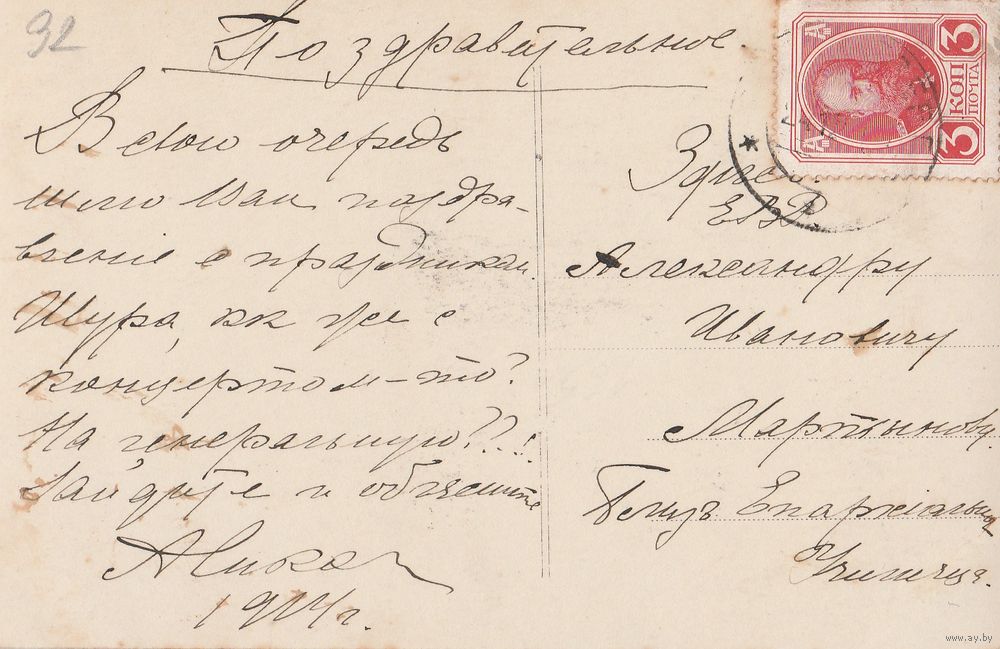 92
Поздравительное
В свою очередь
шлю Вам поздра-
вление с праздником.
Шура, как же с
концертом-то?
На генеральную???
Зайдите и объясните
1914 г.
Здесь.
ЕВБ.
Александру
Ивановичу
Мартынову.
Близъ Епархіальн
Училища.
3 КОП
ПОЧТА
3
www.ay.by